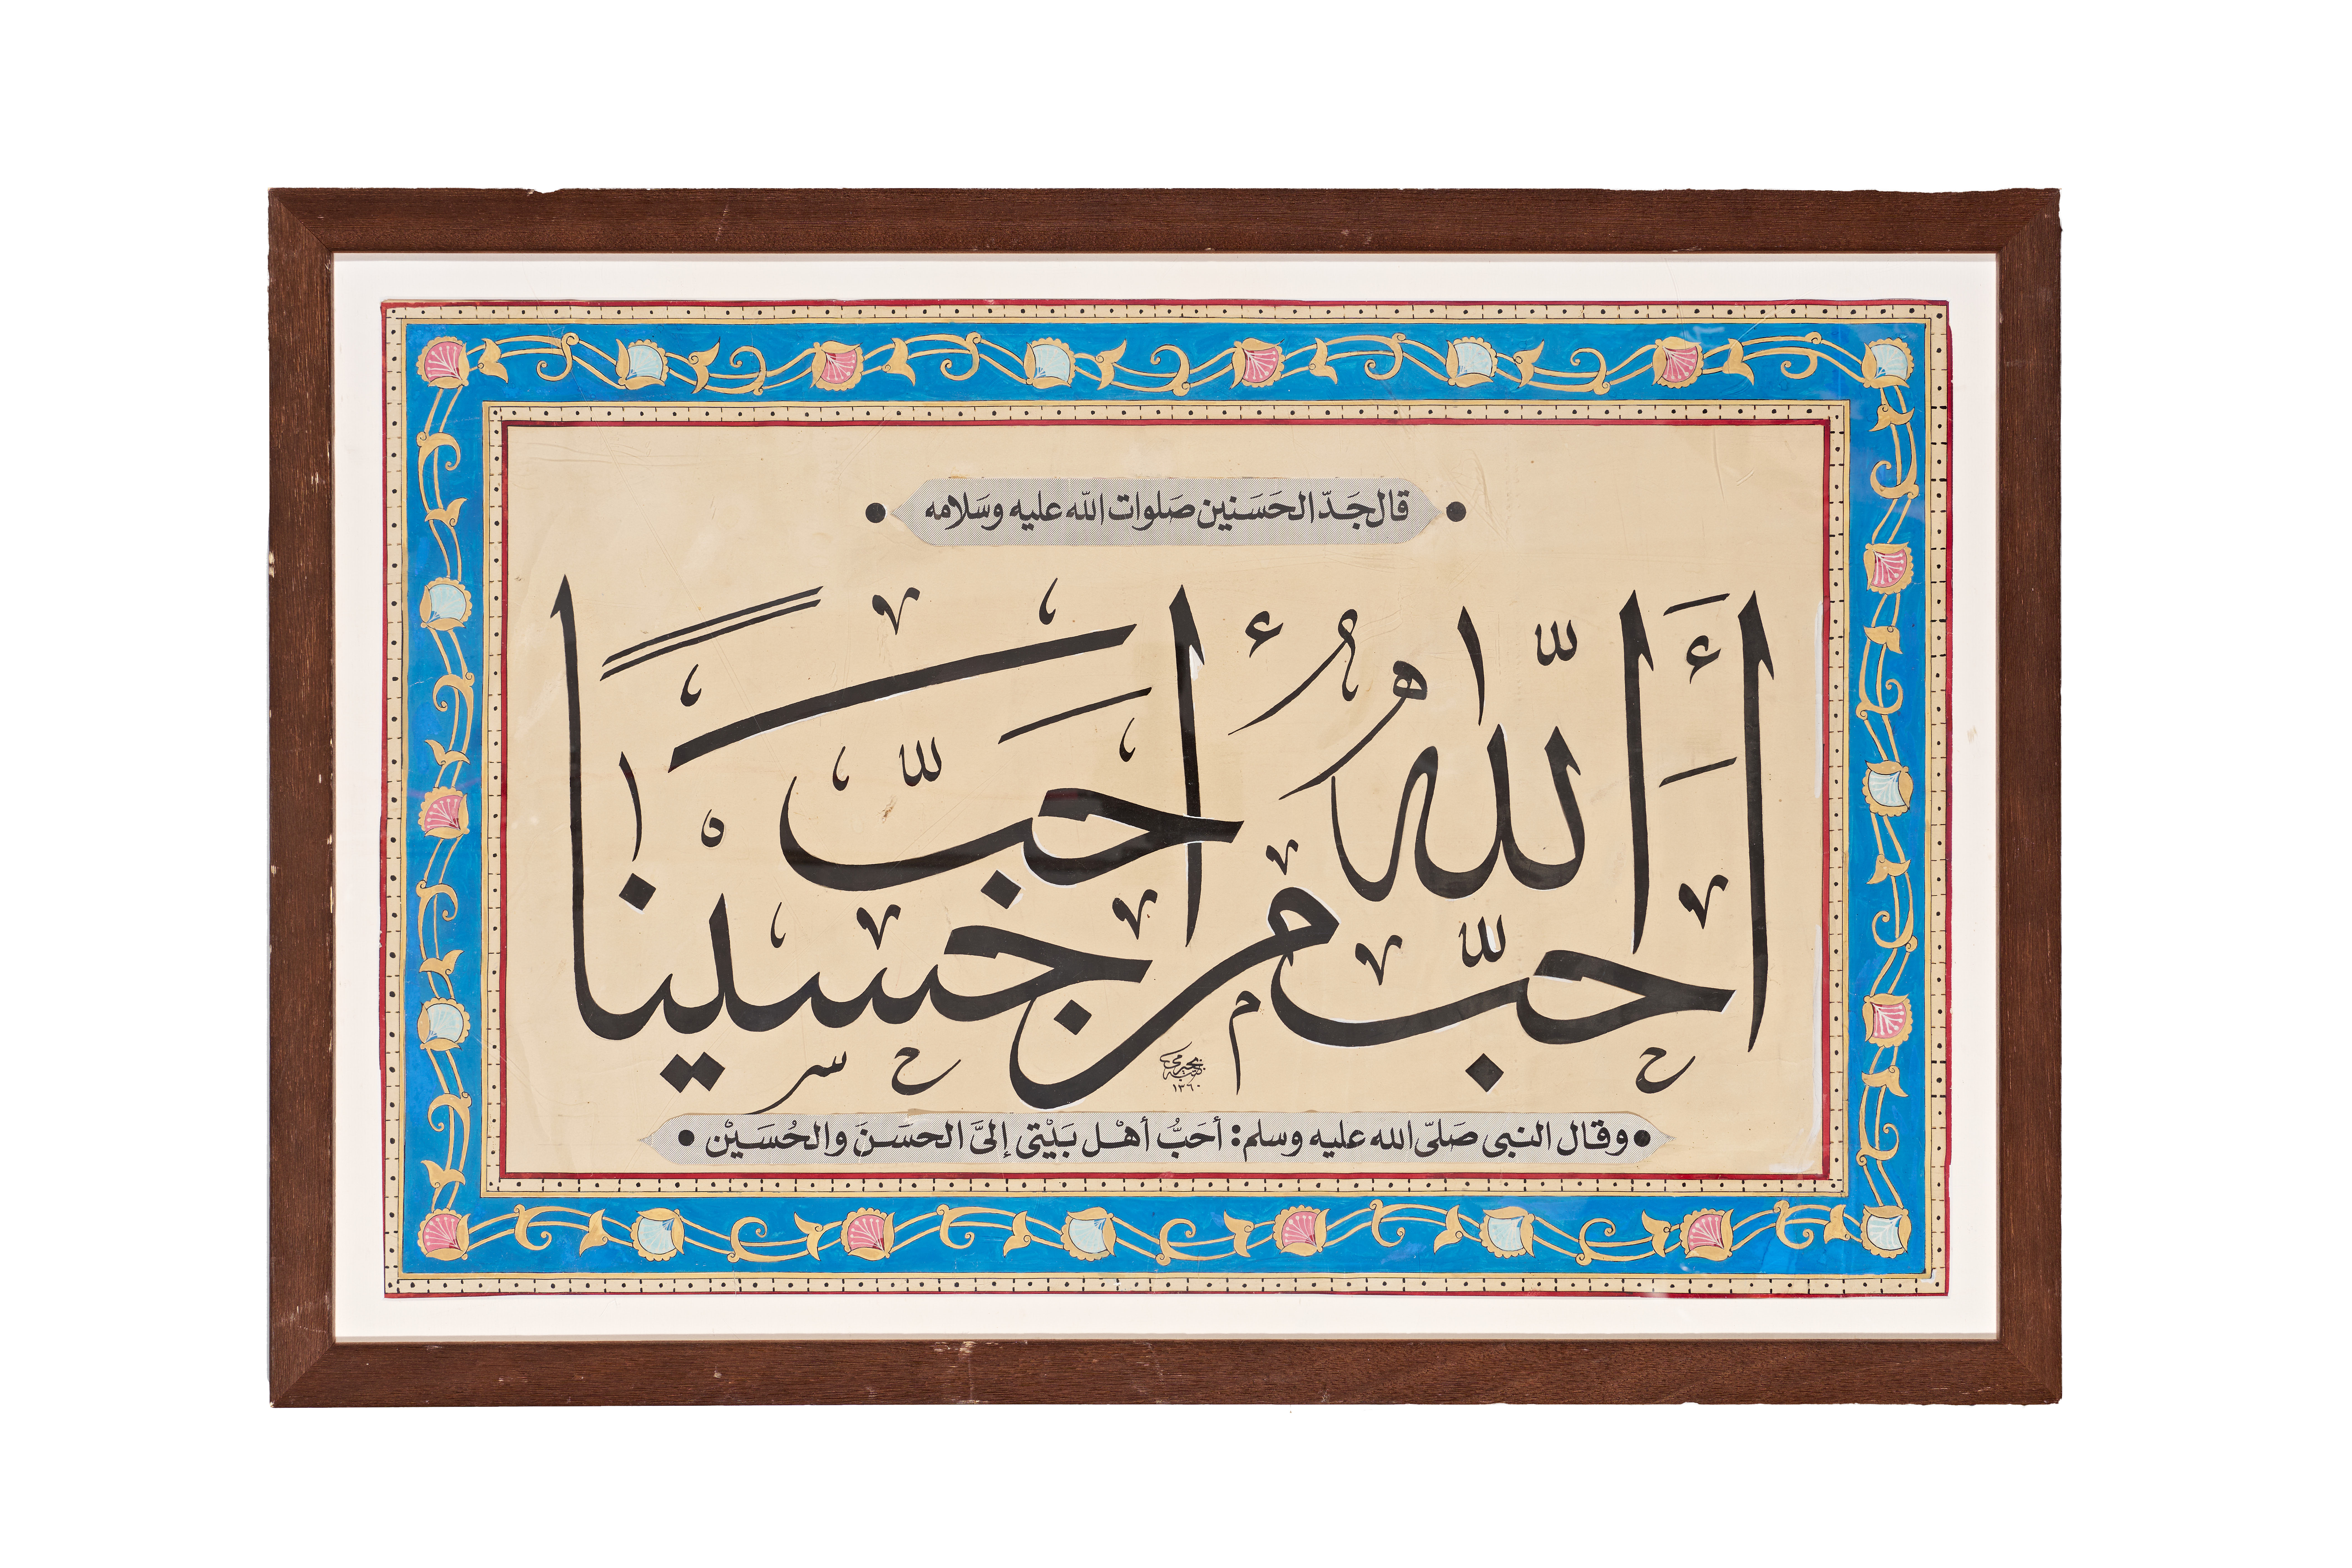 قال جَدّ الحَسَنين صَلوات اللّه عليه وسَلامه
أَحبَّ اللّٰهُ من أحَبَّ حُسَيْنًا
كتبه
١٣٦٠
وقال النبى صَلىّ الله عليه وسلم: أحَبُّ أهْل بَيْتى إلىَّ الحسَنَ والحُسَيْن